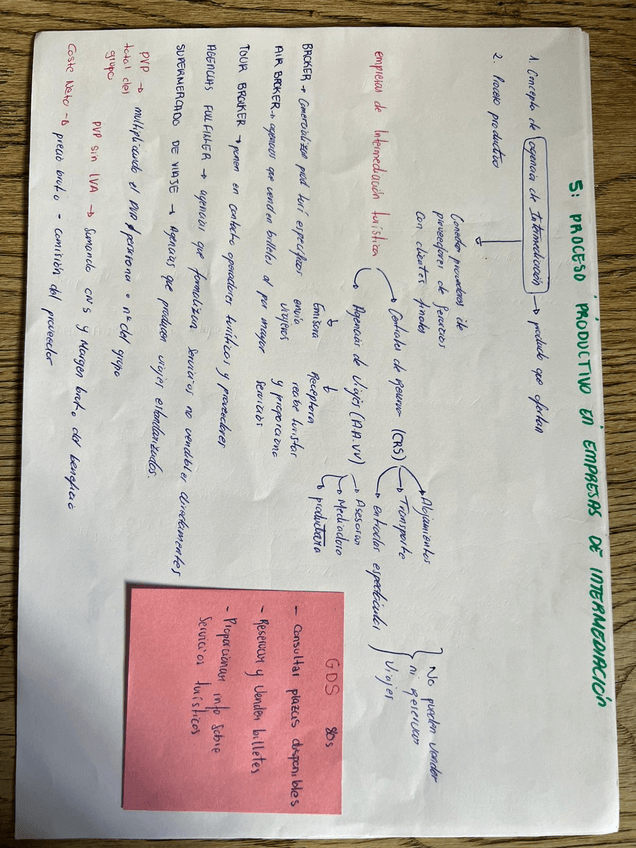 5: PROCESO PRODUCTIVO EN EMPRESAS DE INTERMEDIACIÓN
1. Concepto de agencia de Intermediación → producto que ofertan
Conectar proveedores de
proveedores de servicios
con clientes finales
2. Proceso productivo
empresas de Intermediación turística
Centrales de reserva (CRS)
Alojamientos
Transporte
entradas espectáculos
Viajes
No pueden vender
ni gestionar
Agencias de Viajes (AA.VV)
Asesoras
Mediadora
productora
Emisora
envía
viajeros
Receptora
recibe turistas
y proporciona
servicios
BROKER → Comercializan prod turi específicos
AIR BROKER → agencias que venden billetes al por mayor
TOUR BROKER → ponen en contacto operadores turísticos y proveedores
AGENCIAS FULFILLER → agencias que formalizan servicios no vendibles directamentes
SUPERMERCADO DE VIAJE → Agencias que producen viajes estandarizados.
PVP → multiplicando el PVP persona · nº del grupo
total del
grupo
PVP sin IVA → Sumando CNS y Margen bruto del beneficio
Coste Neto → precio bruto - comisión del proveedor
GDS 80s
- Consultar plazas disponibles
- Reservar y Venden billetes
- Proporcionan info sobre
Servicios turísticos